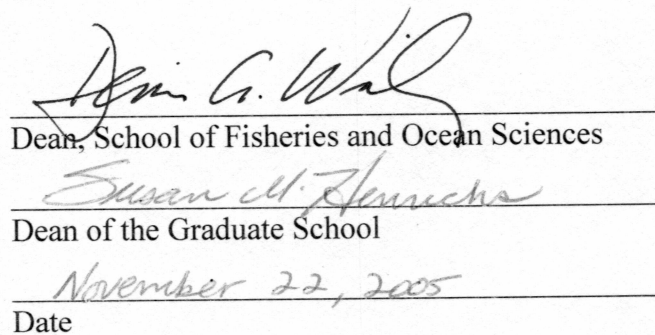 Denis A. Wiesenburg
Dean, School of Fisheries and Ocean Sciences
Susan M. Henrichs
Dean of the Graduate School
November 22, 2005
Date